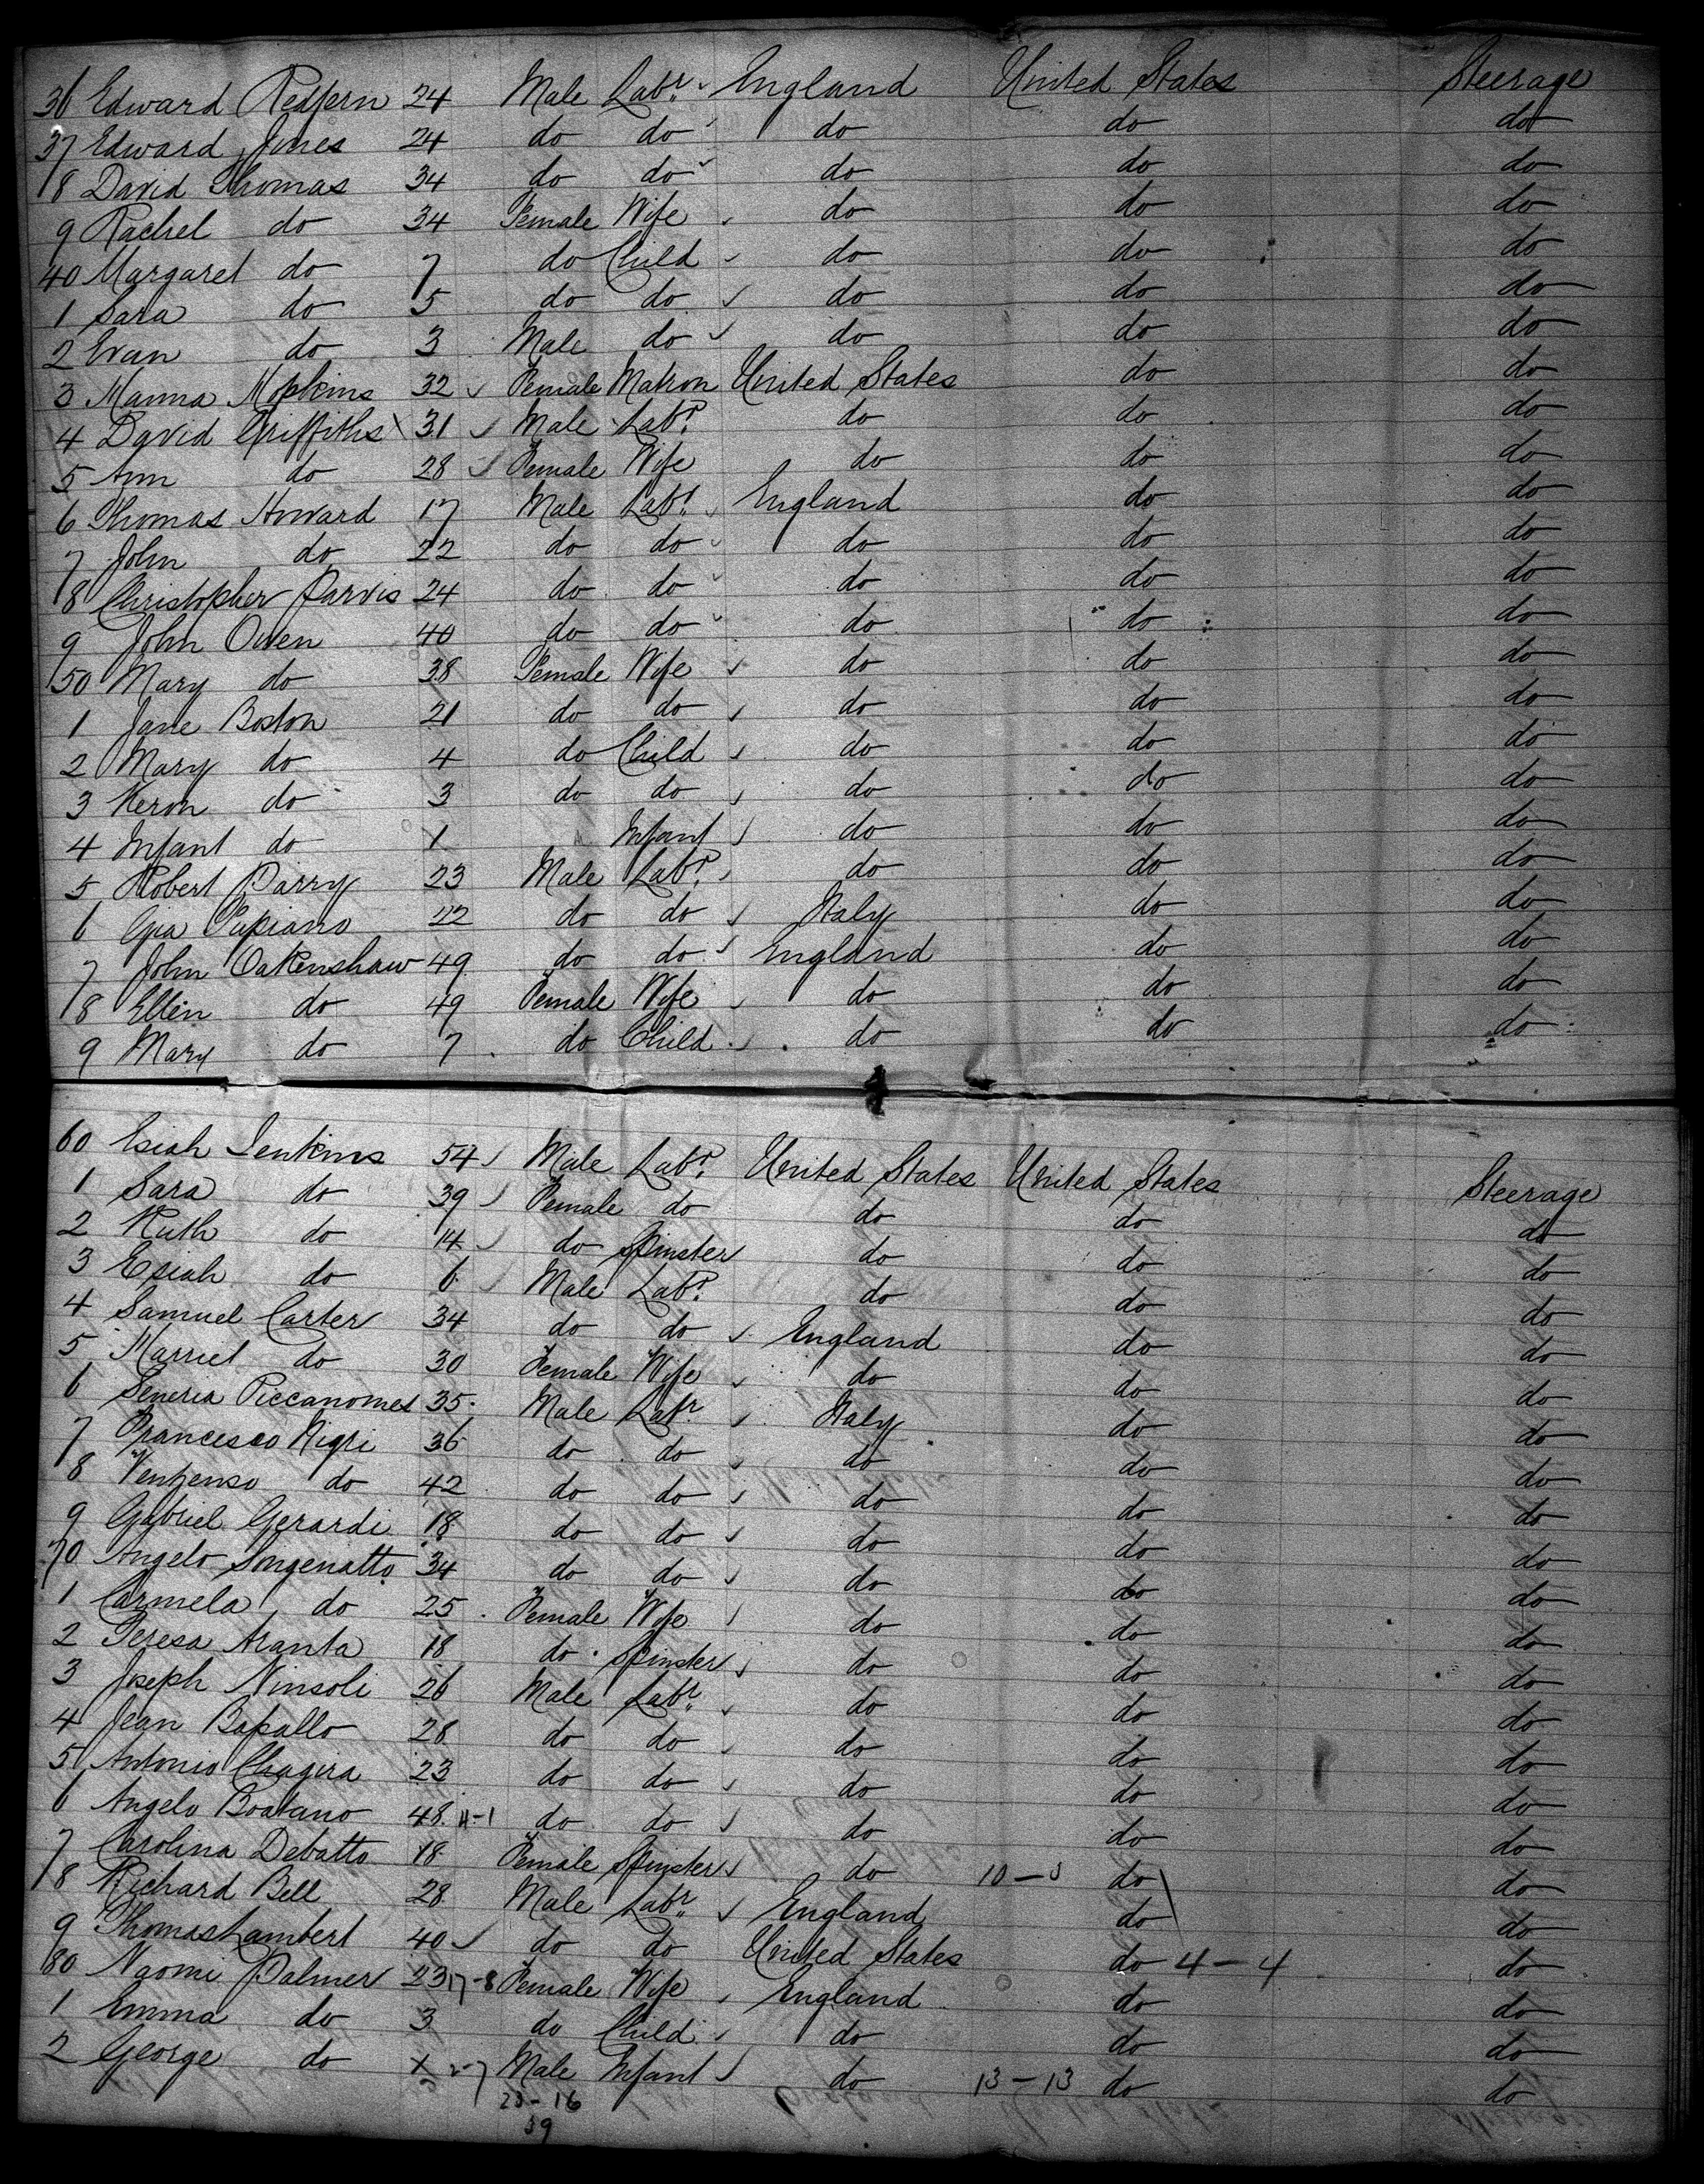 36 Edward Redfern 24 Male Labr. England United States Steerage
37 Edward Jones 24 do do do do do
8 David Thomas 34 do do do do do
9 Rachel do 34 Female Wife do do do
40 Margaret do 7 do Child do do do
1 Sara do 5 do do do do do
2 Evan do 3 Male do do do do
3 Hanna Hopkins 32 Female Matron United States do do
4 David Griffiths 31 Male Labr. do do do
5 Ann do 28 Female Wife do do do
6 Thomas Howard 17 Male Labr. England do do
7 John do 22 do do do do do
8 Christopher Jarvis 24 do do do do do
9 John Owen 40 do do do do do
50 Mary do 38 Female Wife do do do
1 Jane Boston 21 do do do do do
2 Mary do 4 do Child do do do
3 do 3 do do do do do
4 Infant do 1 Infant do do do
5 Robert Parry 23 Male Labr. do do do
6 22 do do Italy do do
7 John Oakenshaw 49 do do England do do
8 Ellen do 49 Female Wife do do do
9 Mary do 7 do Child do do do
60 Esiah Jenkins 54 Male Labr. United States United States Steerage
1 Sara do 39 Female do do do do
2 Ruth do 14 do Spinster do do do
3 Esiah do 6 Male Labr. do do do
4 Samuel Carter 34 do do England do do
5 Harriet do 30 Female Wife do do do
6 Piccanomes 35 Male Labr Italy do do
7 Francesco Nigri 36 do do do do do
8 do 42 do do do do do
9 Gabriel Gerardi 18 do do do do do
70 Angelo 34 do do do do do
1 Carmela do 25 Female Wife do do do
2 Teresa Aranta 18 do Spinster do do do
3 Joseph Ninsoli 26 Male Labr. do do do
4 Jean 28 do do do do do
5 Antonio 23 do do do do do
6 Angelo Boatano 48 11-1 do do do do do
7 Carolina Debatto 18 Female Spinster do 10 - do do
8 Richard Bell 28 Male Labr. England do do
9 Thomas Lambert 40 do do United States do 4 - 4 do
80 Naomi Palmer 23 17-8 Female Wife England do do
1 Emma do 3 do Child do do do
2 George do Male Infant do 13 - 13 do do
23 - 16
39